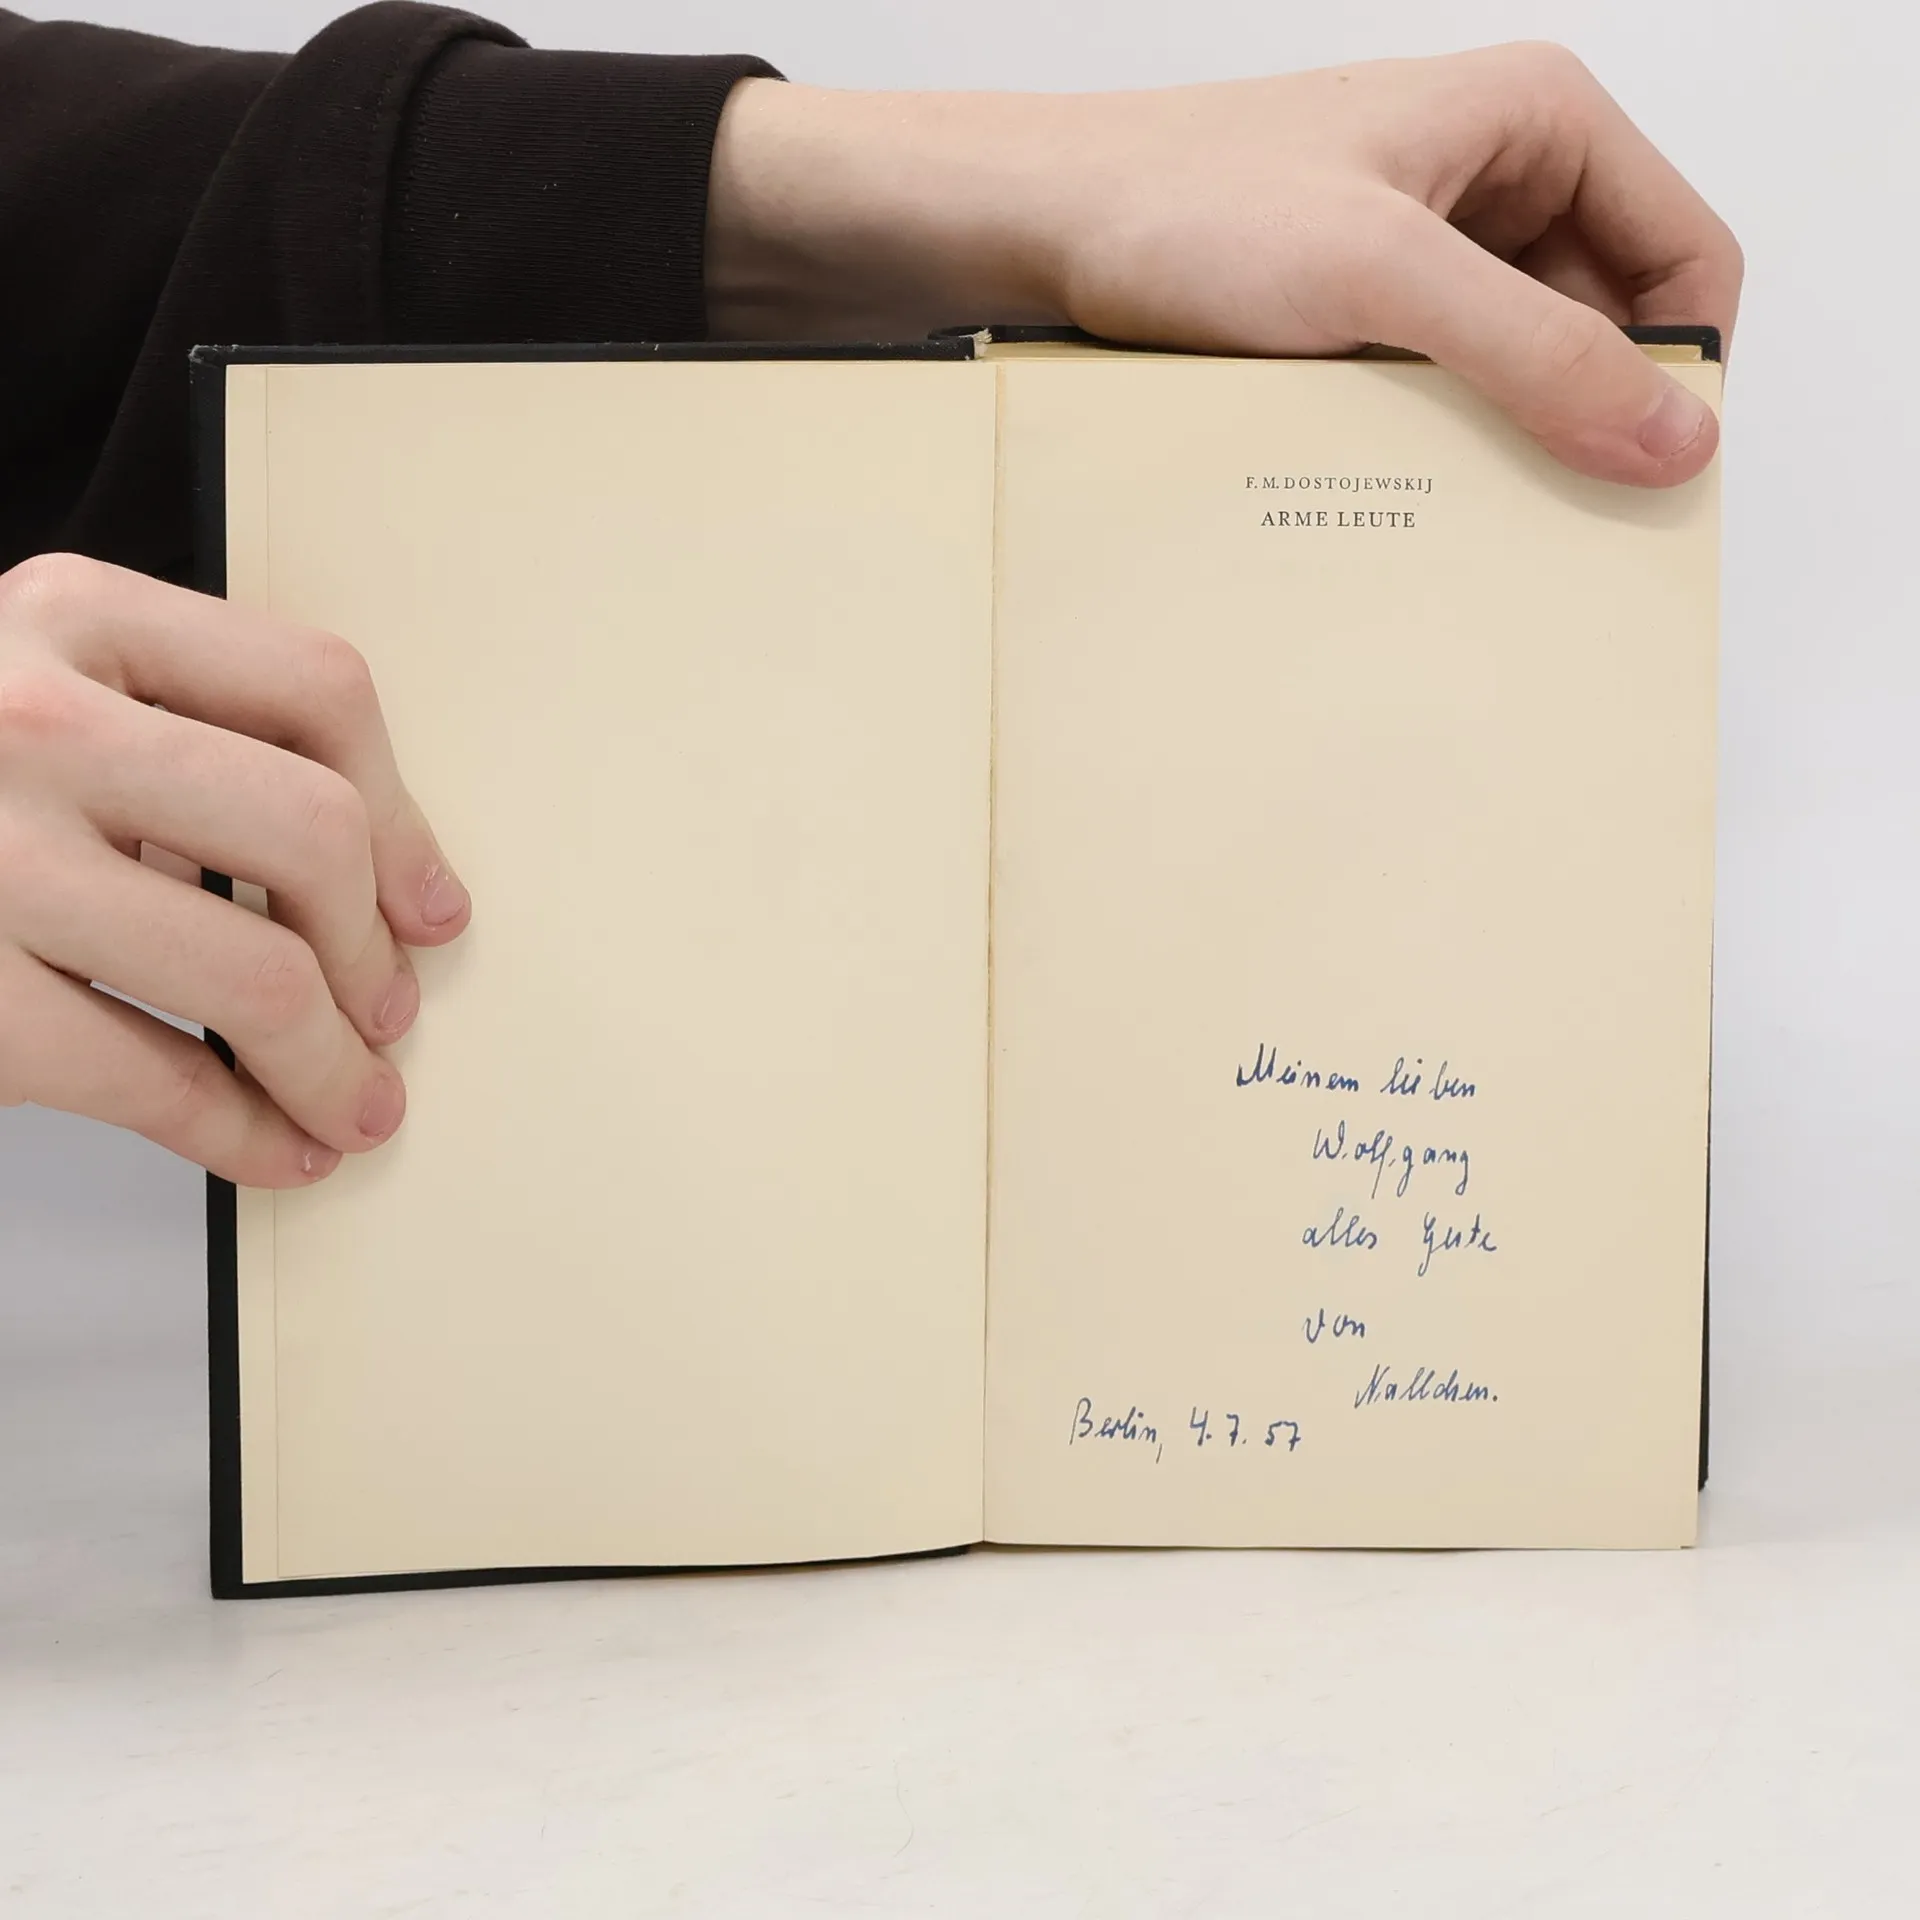 F. M. DOSTOJEWSKIJ
ARME LEUTE
Meinem lieben
Wolfgang
alles Gute
von
Nallchen.
Berlin, 4.7.57